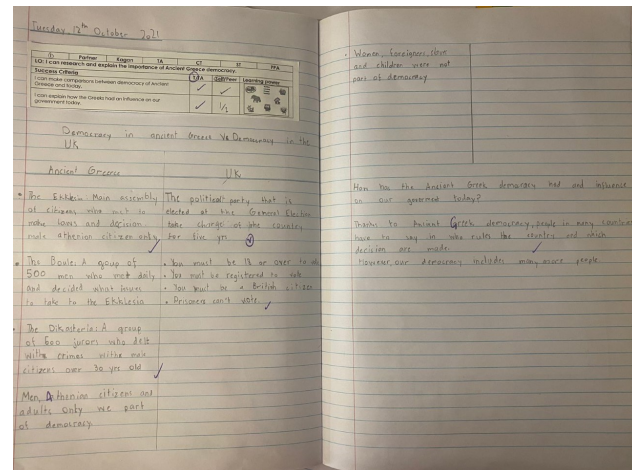 Tuesday 12th October 2021
① Partner Kagan TA CT ST PPA
LO: I can research and explain the importance of Ancient Greece democracy.
Success Criteria T/TA Self/Peer Learning power
I can make comparisons between democracy of Ancient
Greece and today.
I can explain how the Greeks had an influence on our
government today.
Democracy in ancient Greece Vs Democracy in the
UK
Ancient Greece
The Ekklesia: Main assembly
of citizens, who met to
make laws and decision
male athenian citizen only
The Boule: A group of
500 men who met daily
and decided what issues
to take to the Ekklesia
The Dikasteria: A group
of 500 jurors who delt
withe crimes withe male
citizens over 30 yrs old
Men, Athenian citizens and
adults only we part
of democracy
UK
The political party that is
elected at the General Election
take charge of the country
for five yrs
• You must be 18 or over to
• You must be registered to vote
• You must be a British citizen
• Prisoners can't vote
• Women, foreigners, slaves
and children were not
part of democracy
How has the Ancient Greek democracy had and influence
on our goverment today?
Thanks to Ancient Greek democracy, people in many countries
have to say in who rules the country and which
decision are made.
However, our democracy includes many more people